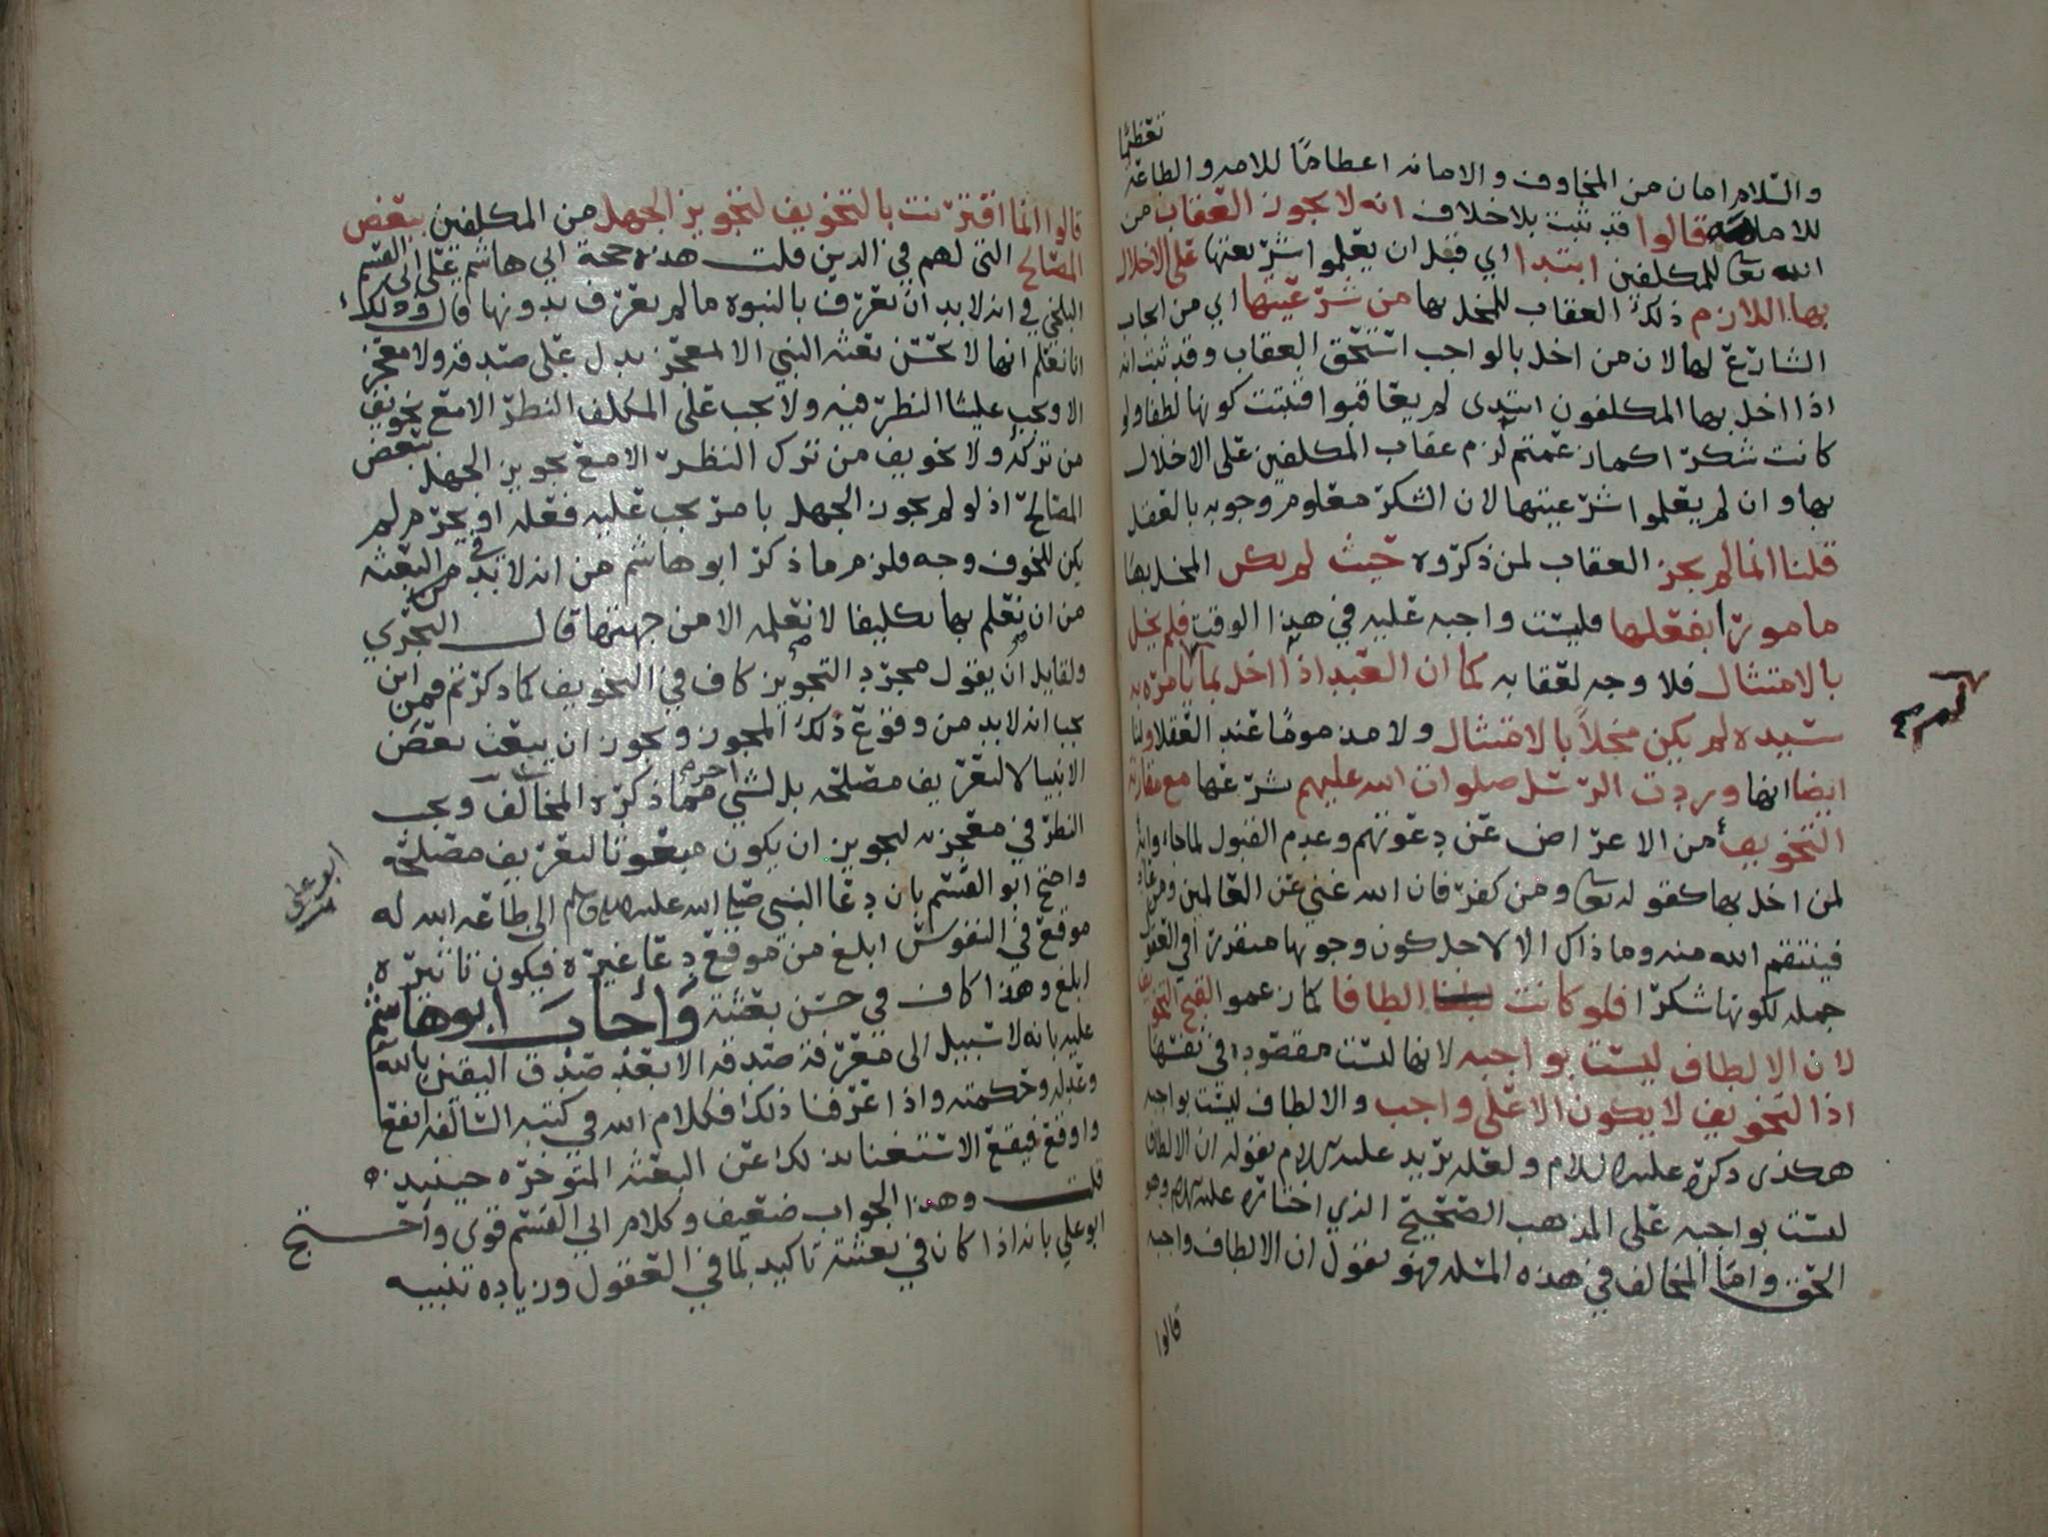 تعظيما
والسلام امان من المخاوف والامانه اعطاها للامه والطاعه
للامامه قالوا قد ثبت بلا خلاف انه لا يجوز العقاب من
الله تعالى للمكلفين ابتدا اي قبل ان يعلموا شرعيتها على الاخلال
بها اللازم ذلك العقاب للمخل بها من شرعيتها اي من ايجاب
الشارع لها لان من اخل بالواجب استحق العقاب وقد ثبت انه
اذا اخل بها المكلفون ابتدى لم يعاقبوا فثبت كونها لطفا ولو
كانت شكرا كما زعمتم لزم عقاب المكلفين على الاخلال
بها وان لم يعلموا شرعيتها لان الشكر معلوم وجوبه بالعقل
قلنا انما لم يجز العقاب لمن ذكروه حيث لم يكن المخل بها
مامورا بفعلها فليست واجبه عليه في هذا الوقت فلم يخل
بالامتثال فلا وجه لعقابه كما ان العبد اذا اخل بما لم يامره به
سيده لم يكن مخلاً بالامتثال ولا مذموما عند العقلا ولنا
ايضا انها وردت الرسل صلوات الله عليهم بشرعها مع مقارنة
التخويف من الاعراض عن دعوتهم وعدم القبول لما جاءوا به
لمن اخل بها كقوله تعالى ومن كفر فان الله غني عن العالمين ومن عاد
فينتقم الله منه وما ذاك الا لاجل كون وجوبها متقررا في العقل
جمله لكونها شكرا فلو كانت الطافا كما زعموا لقبح التخويف
لان الالطاف ليست بواجبه لانها ليست مقصوده في نفسها
اذ التخويف لا يكون الا على واجب والالطاف ليست بواجبه
هكذى ذكره عليه السلام ولعله يريد عليه السلام بقوله ان الالطاف
ليست بواجبه على المذهب الصحيح الذي اختاره عليه السلام وهو
الحق واما المخالف في هذه المسله فهو يقول ان الالطاف واجبه
قالوا
قالوا انما اقترنت بالتخويف لتجويز الجهل من المكلفين ببعض
المصالح التي لهم في الدين قلت هذه حجة ابي هاشم على ابي القسم
البلخي في انه لا بد ان نعرف بالنبوه ما لم نعرف بدونها قال وذلك
انا نعلم انها لا تحسن بعثه النبي الا لمعجز يدل على صدقه ولا معجز
الا ويجب علينا النظر فيه ولا يجب على المكلف النظر الا مع تخويف
من تركه ولا تخويف من ترك النظر الا مع تجويز الجهل ببعض
المصالح اذ لو لم يجوز الجهل بامر يجب عليه فعله او يحرم لم
يكن للخوف وجه فلزم ما ذكر ابو هاشم من انه لا بد في البعثه
من ان نعلم بها تكليفا لا نعلمه الا من جهتها قال النجري
ولقايل ان يقول مجرد التجويز كاف في التخويف كما ذكرتم فمن اين
يجب انه لا بد من وقوع ذلك المجوز ويجوز ان يبعث بعض
الانبيا لا لتعريف مصلحه بل لشي اخر مما ذكره المخالف ويجب
النظر في معجزته لتجويز ان يكون مبعوثا لتعريف مصلحه
واحتج ابو القسم بان دعا النبي صلى الله عليه واله وسلم الى طاعه الله له
موقع في النفوس ابلغ من موقع دعا غيره فيكون تاثيره
ابلغ وهذا كاف في حسن بعثته وأجاب ابو هاشم
عليه بانه لا سبيل الى معرفة صدقه الا بعد صدق اليقين بالله
وعدله وحكمته واذا عرفنا ذلك فكلام الله في كتبه السالفه انفع
واوقع فيقع الاستغنا بذلك عن البعثه المتوخره حينيذ
قلت وهذا الجواب ضعيف وكلام ابي القسم قوى واحتج
ابو علي بانه اذا كان في بعثته تاكيد لما في العقول وزياده تنبيه